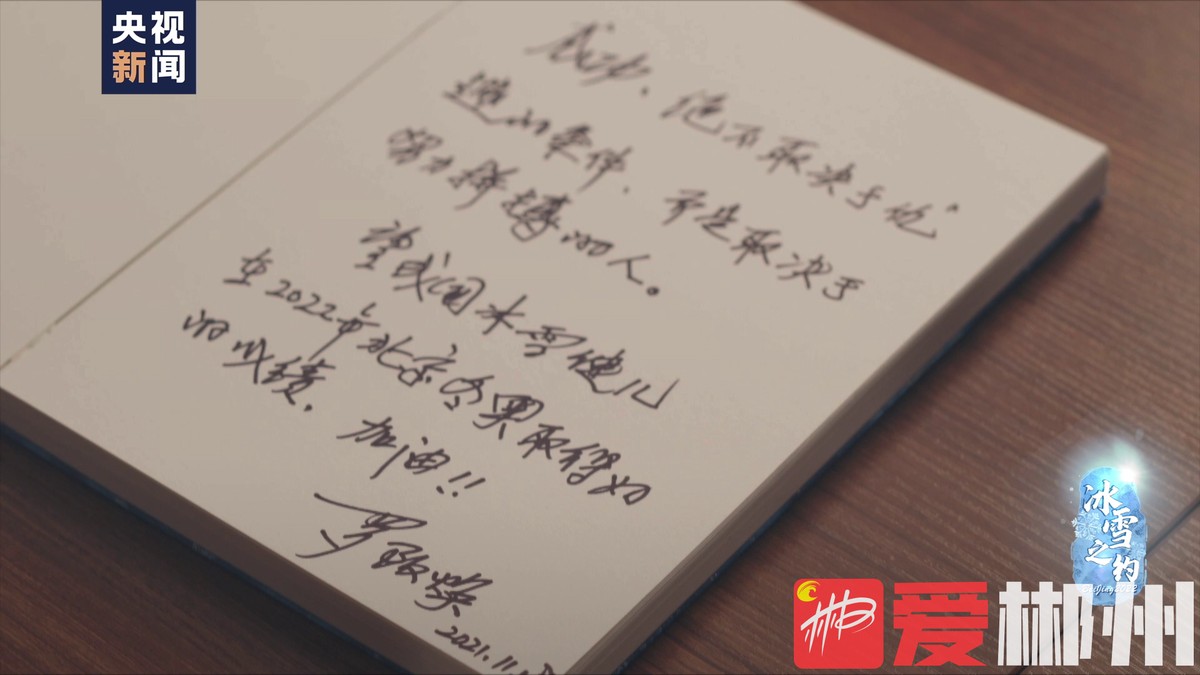 央视
新闻
成功、绝不取决于优
越的条件，而是取决于
努力拼搏的人。
望我国冰雪健儿
在2022年北京冬奥取得好
的成绩，加油!!
罗致焕
2021.11
冰雪之约
BeiJing2022
彬
爱郴州